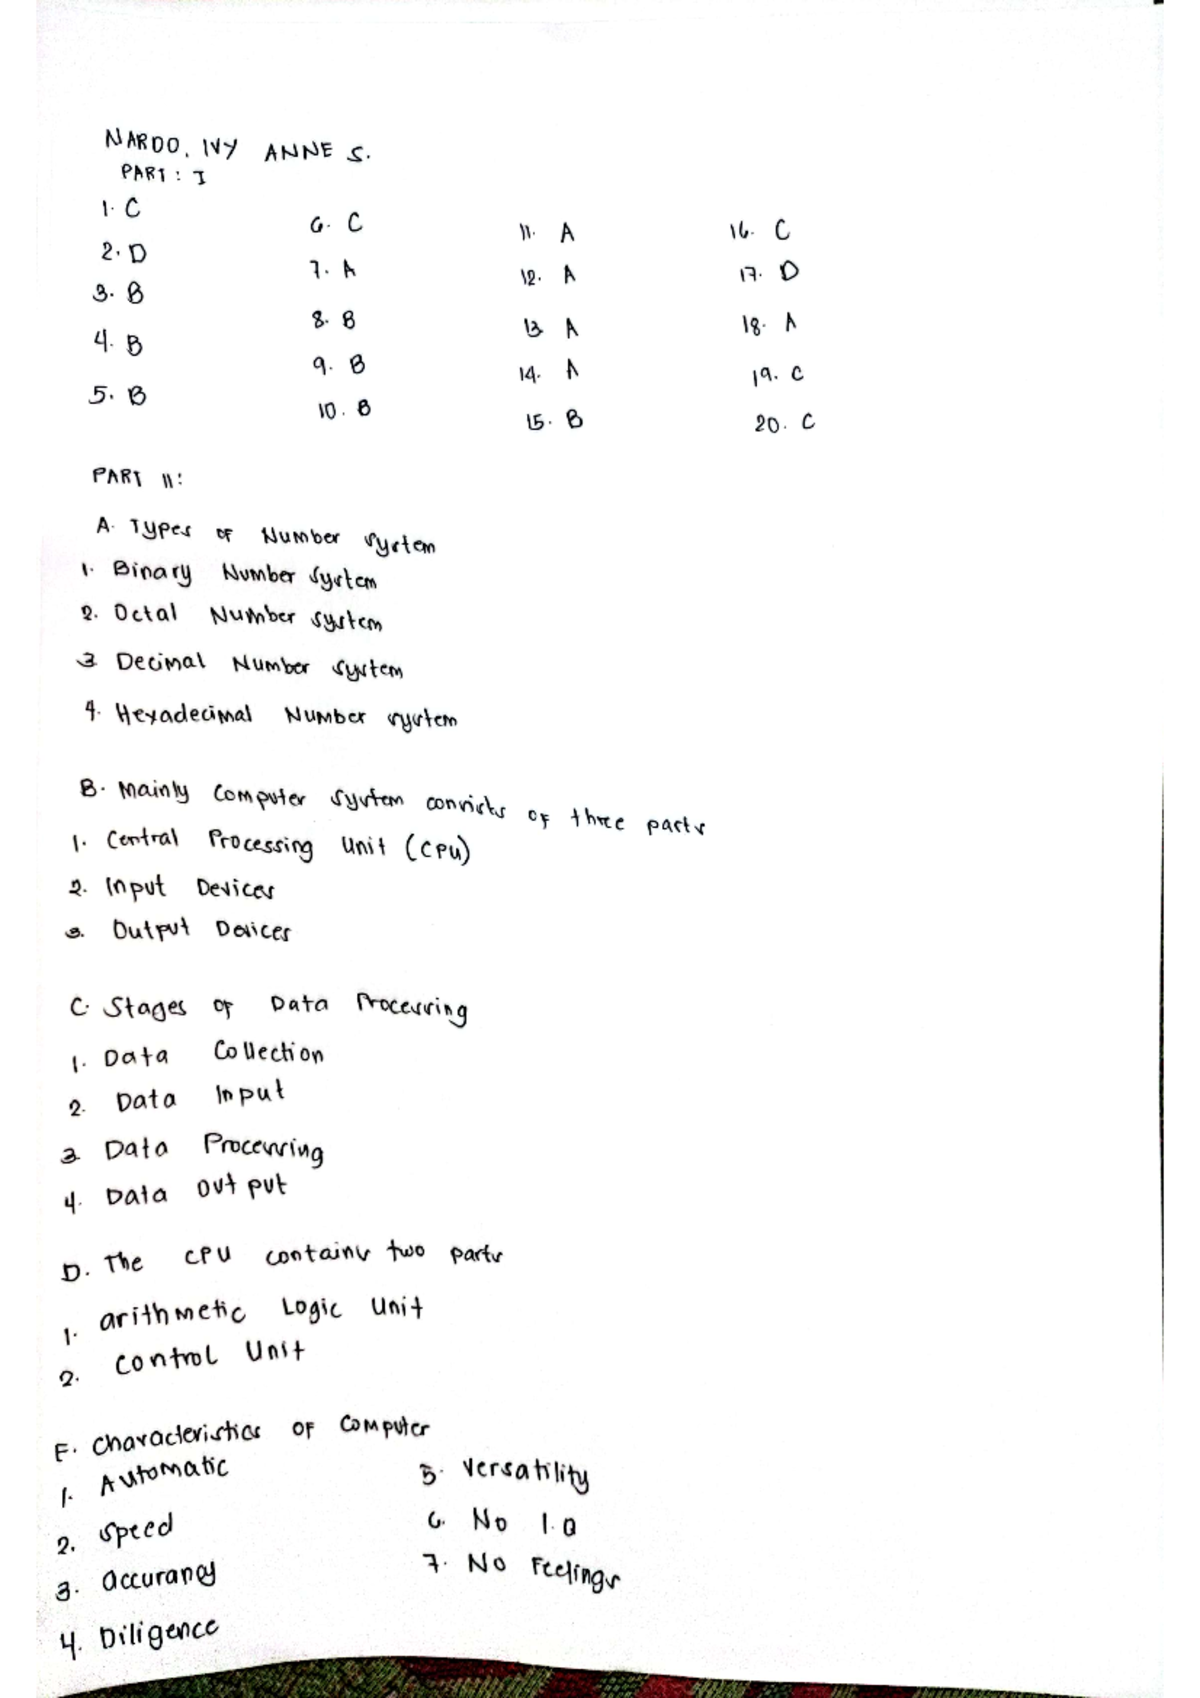 NARDO, IVY ANNE S.
PART : I
1. C
2. D
3. B
4. B
5. B
6. C
7. A
8. B
9. B
10. B
11. A
12. A
13 A
14. A
15. B
16. C
17. D
18. A
19. C
20. C
PART II:
A. Types of Number system
1. Binary Number system
2. Octal Number system
3 Decimal Number system
4. Hexadecimal Number system
B. Mainly computer system consists of three parts
1. Central Processing Unit (CPU)
2. Input Devices
3. Output Devices
C. Stages of Data Processing
1. Data Collection
2. Data Input
3 Data Processing
4. Data output
D. The CPU contains two parts
1. arithmetic Logic Unit
2. control Unit
E. characteristics of computer
1. Automatic
2. speed
3. accurancy
4. Diligence
5. Versatility
6. No I.Q
7. No Feelings